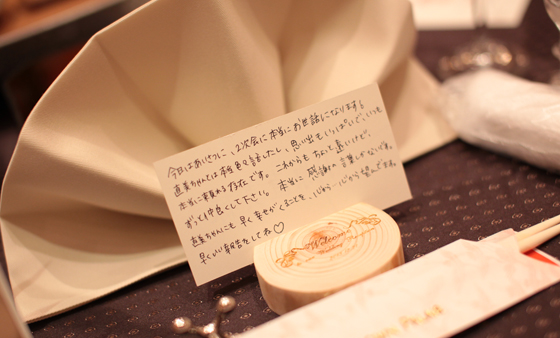 今日はあいさつに、2次会に本当にお世話になります。
直美ちゃんとは本当色々話したし、思い出もいっぱいで、いつも
本当に頼れる存在です。これからもちょっと遠いけど、
ずっと仲良くして下さい。本当に感謝の言葉しかないです。
直美ちゃんにも早く幸せがくることを、心から望んでます。
早くいい報告をしてね♡
Welcome